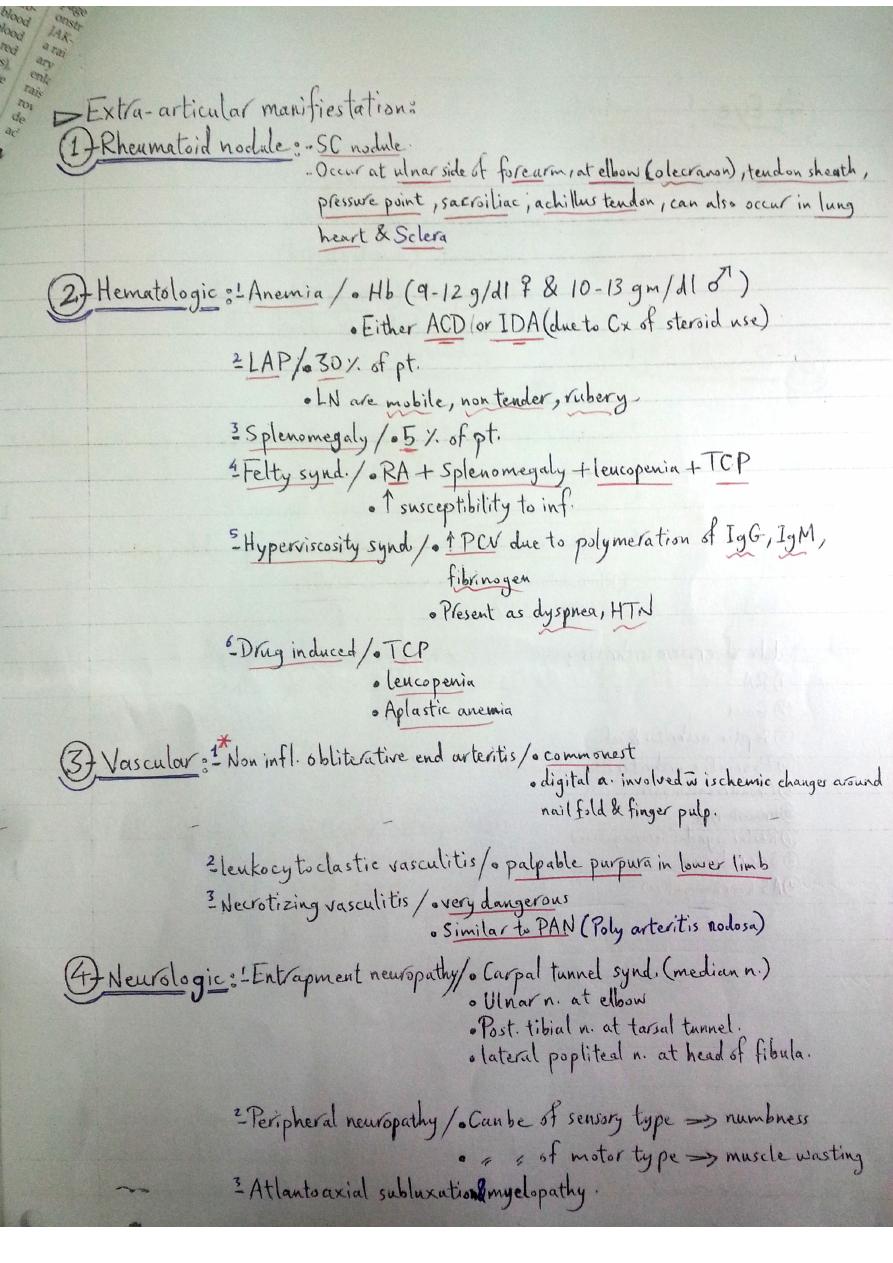 blood
blood
red
s).
e
age
onstr
JAK-
a rai
ary
enh
rais
rov
de
ac
Extra-articular manifiestation:
1 Rheumatoid nodule: - SC nodule.
- Occur at ulnar side of forearm, at elbow (olecranon), tendon sheath,
pressure point, sacroiliac, achillus tendon, can also occur in lung
heart & Sclera
2 Hematologic: 1- Anemia / • Hb (9-12 g/dl ♀ & 10-13 gm/dl ♂)
• Either ACD or IDA (due to Cx of steroid use)
2- LAP / • 30% of pt.
• LN are mobile, non tender, rubery
3- Splenomegaly / • 5 % of pt.
4- Felty synd. / • RA + Splenomegaly + leucopenia + TCP
• ↑ susceptibility to inf.
5- Hyperviscosity synd / • ↑ PCV due to polymeration of IgG, IgM,
fibrinogen
• Present as dyspnea, HTN
6- Drug induced / • TCP
• leucopenia
• Aplastic anemia
3 Vascular: 1-* Non infl. obliterative end arteritis / • commonest
• digital a. involved w̄ ischemic changes around
nail fold & finger pulp.
2- leukocytoclastic vasculitis / • palpable purpura in lower limb
3- Necrotizing vasculitis / • very dangerous
• Similar to PAN (Poly arteritis nodosa)
4 Neurologic: 1- Entrapment neuropathy / • Carpal tunnel synd. (median n.)
• Ulnar n. at elbow
• Post. tibial n. at tarsal tunnel.
• lateral popliteal n. at head of fibula.
2- Peripheral neuropathy / • Can be of sensory type ⇒ numbness
• 〃 〃 of motor type ⇒ muscle wasting
3- Atlantoaxial subluxation & myelopathy.